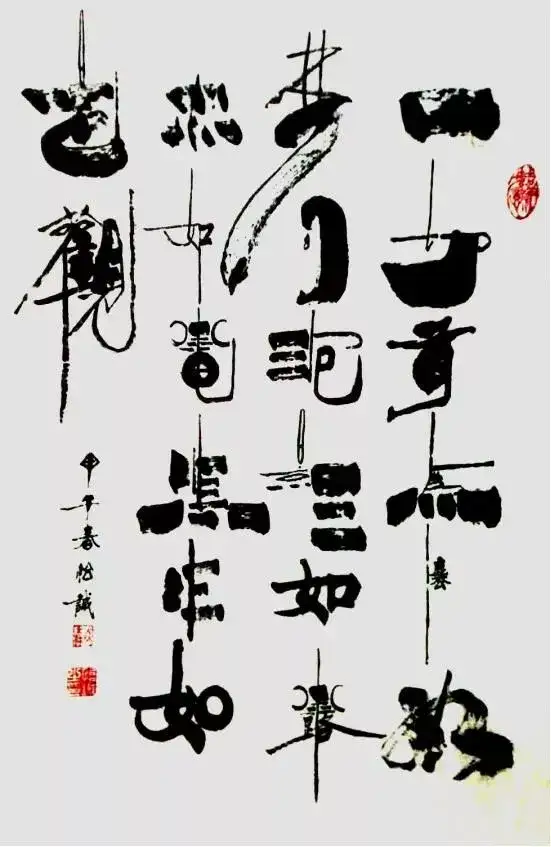 一切有為法
夢幻泡影如露
亦如電應作如
是觀
甲午春怡誠